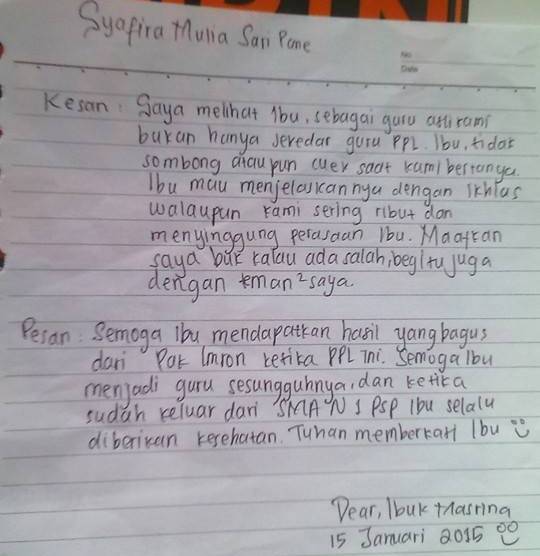 Syafira Mulia Sari Pane
No
Date
Kesan : Saya melihat Ibu, sebagai guru asli kami
bukan hanya sekedar guru PPL. Ibu, tidak
sombong ataupun cuek saat kami bertanya.
Ibu mau menjelaskannya dengan ikhlas
walaupun kami sering ribut dan
menyinggung perasaan Ibu. Maafkan
saya buk kalau ada salah, begitu juga
dengan teman² saya.
Pesan : Semoga Ibu mendapatkan hasil yang bagus
dari Pak Imron ketika PPL ini. Semoga Ibu
menjadi guru sesungguhnya, dan ketika
sudah keluar dari SMA N 1 PSP Ibu selalu
diberikan kesehatan. Tuhan memberkati Ibu
Dear, Ibuk Masring
15 Januari 2015